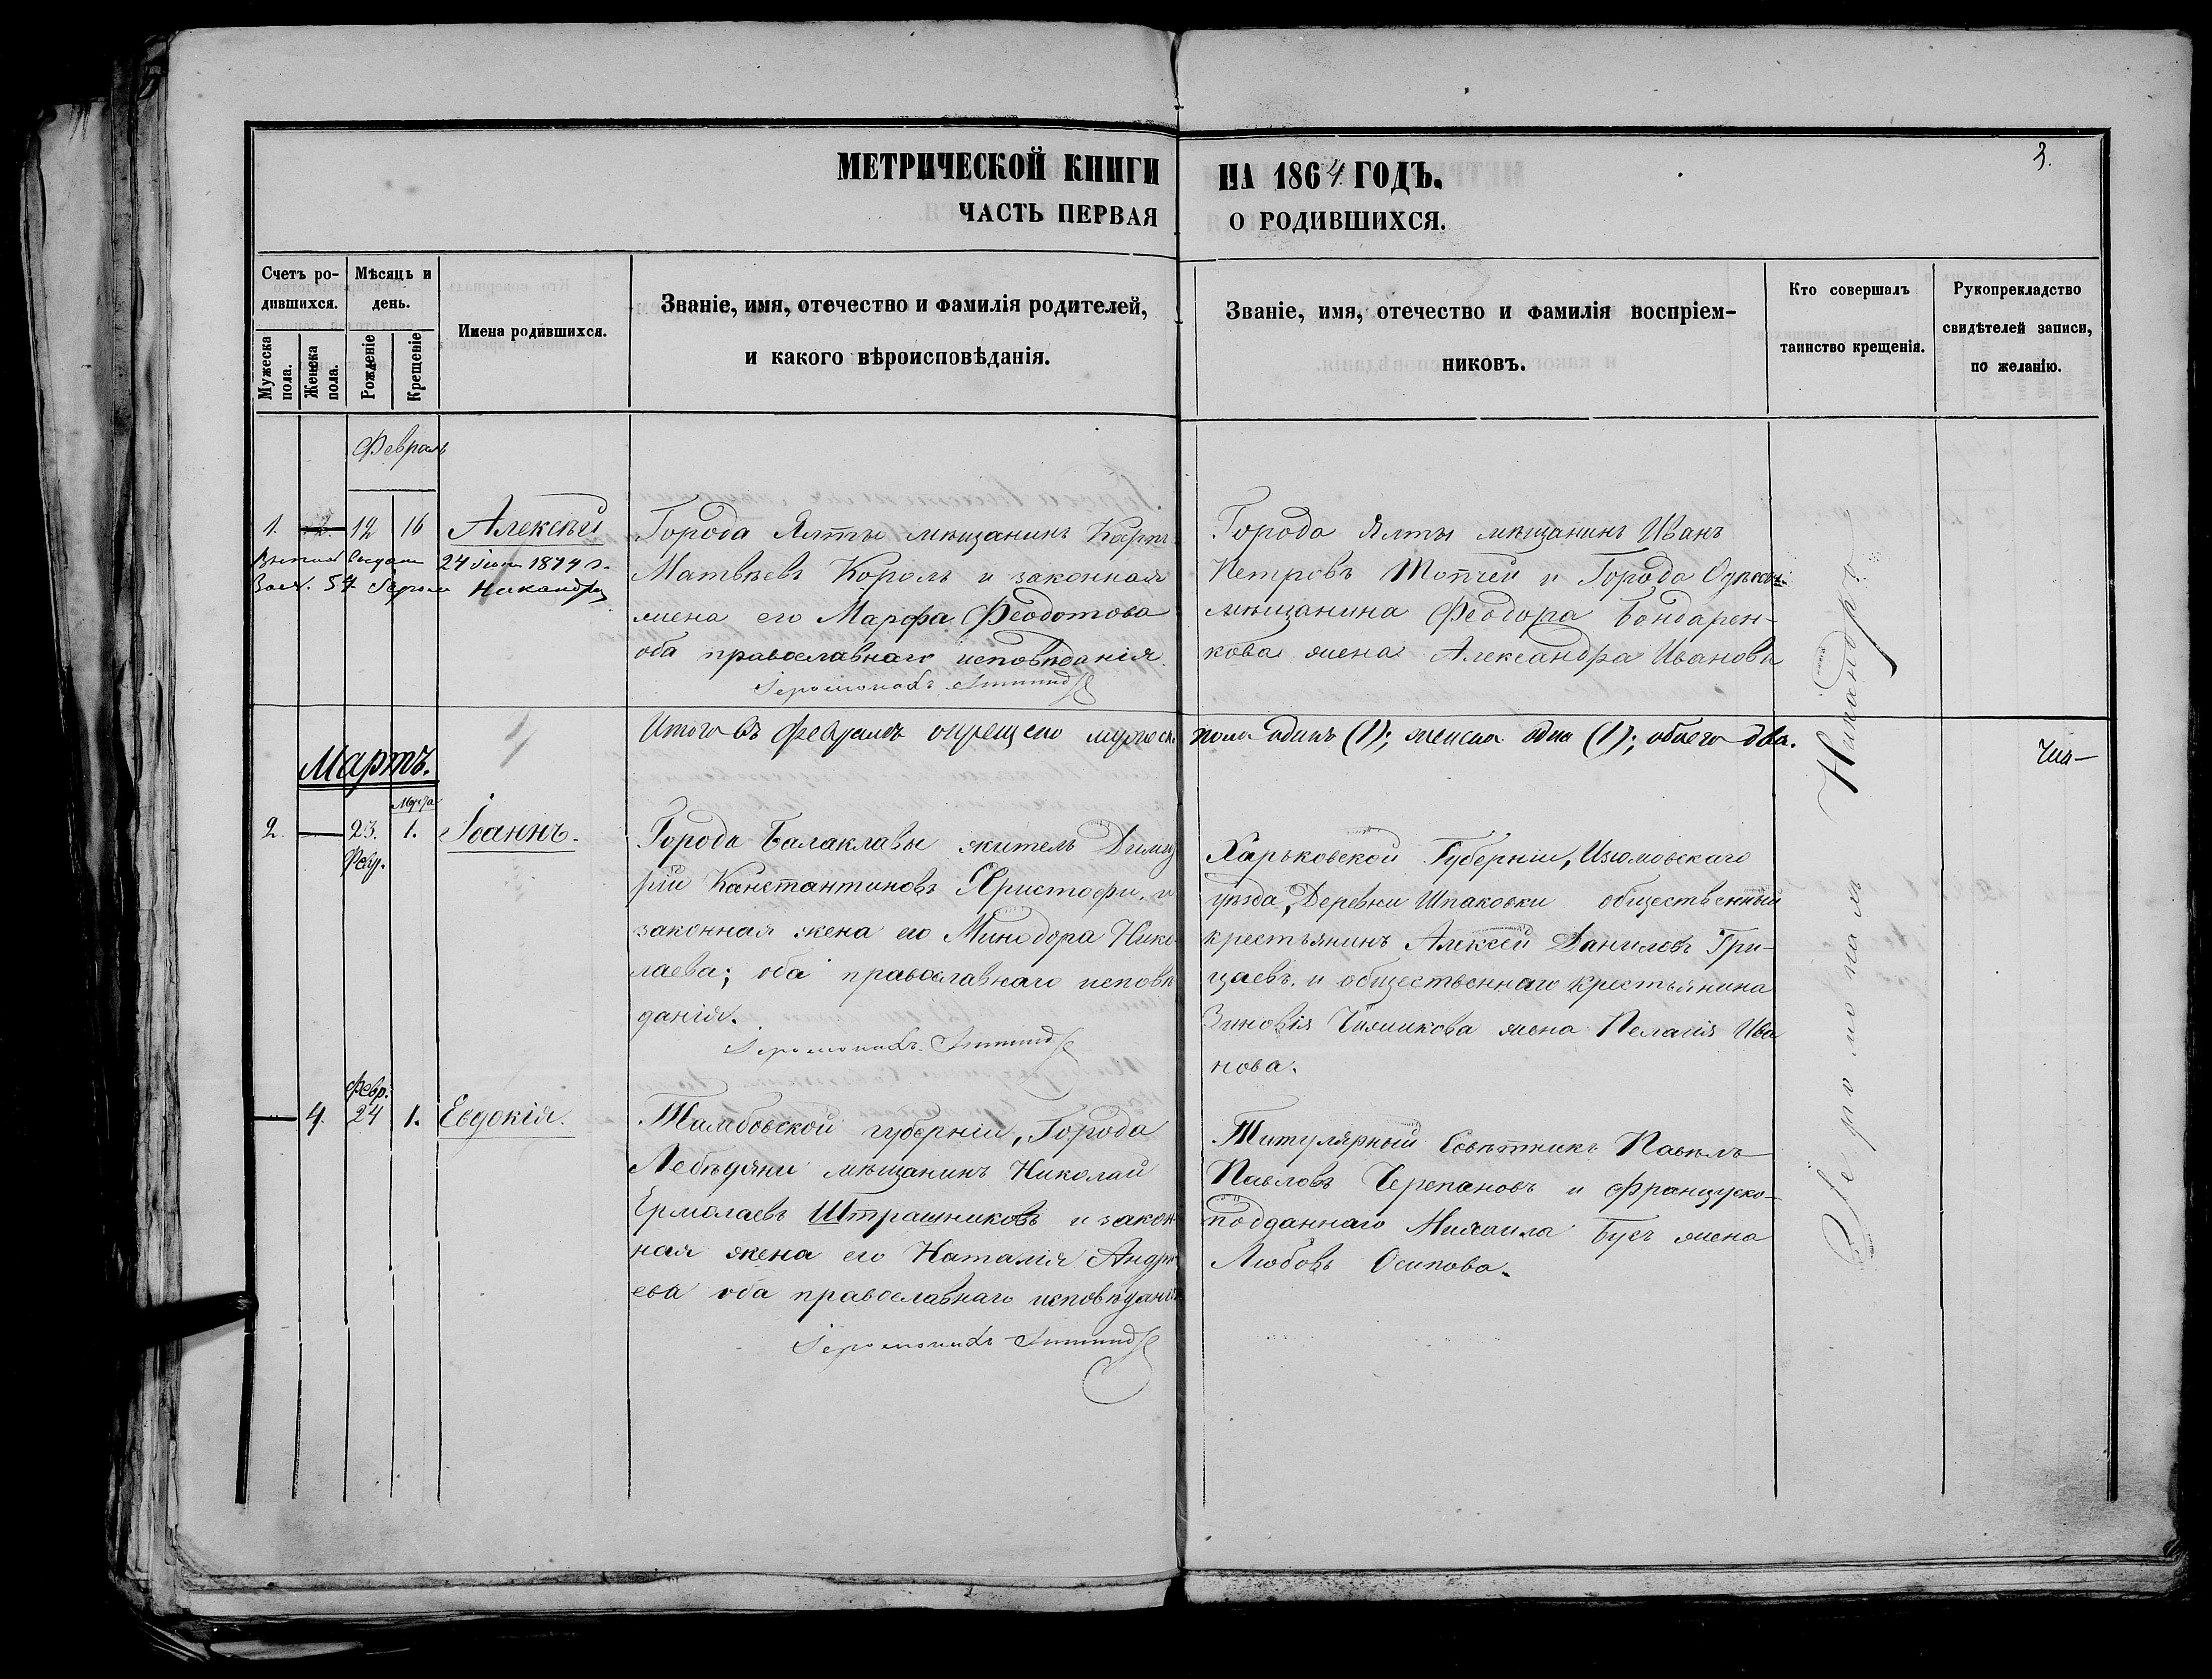 3.
МЕТРИЧЕСКОЙ КНИГИ НА 1864 ГОДЪ.
ЧАСТЬ ПЕРВАЯ О РОДИВШИХСЯ.
Счетъ ро-
дившихся.
Мужеска
пола.
Женска
пола.
Мѣсяцъ и
день.
Рожденіе
Крещеніе
Имена родившихся.
Званіе, имя, отечество и фамилія родителей,
и какого вѣроисповѣданія.
Званіе, имя, отечество и фамилія воспріем-
никовъ.
Кто совершалъ
таинство крещенія.
Рукоприкладство
свидѣтелей записи,
по желанію.
Февраль
1. 12 16 Алексѣй
24 1874 г.
54 Никандръ
Города Ялты мѣщанинъ Карпъ
Матвѣевъ Король и законная
жена его Марфа Феодотова
оба православнаго исповѣданія.
Іеромонахъ
Города Ялты мѣщанинъ Иванъ
Петровъ Топчей и Города Одессы
мѣщанина Феодора Бондарен-
кова жена Александра Иванова
Итого въ Февралѣ окрещено мужеск. пола одинъ (1); женска одна (1); обоего два.
Мартъ.
Марта
2. — 23. 1. Іоаннъ.
Фев.
Города Балаклавы житель Димит
рій Канстантиновъ Христофи, и
законная жена его Минодора Нико
лаева; оба православнаго исповѣ
данія.
Іеромонахъ
Харьковской Губерніи, Изюмовскаго
уѣзда, Деревни Шпаковки общественный
крестьянинъ Алексѣй Даниловъ Гри-
цаевъ. и общественнаго крестьянина
Зиновія жена Пелагія Ива
нова.
Февр.
— 4. 24 1. Евдокія.
Тамбовской губерніи, Города
Лебѣдяни мѣщанинъ Николай
Ермолаевъ Штрашниковъ и закон
ная жена его Наталія Андрѣ
ева оба православнаго исповѣданія
Іеромонахъ
Титулярный Совѣтникъ Павелъ
Павловъ Черепановъ и Французско-
подданнаго Михаила Бусъ жена
Любовь Осипова.
Іеромонахъ Никандръ